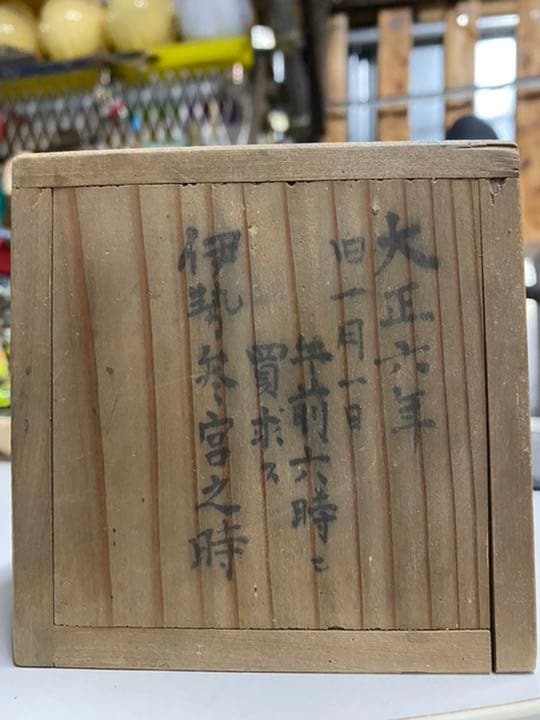 大正六年
旧一月一日
午前六時ニ
買求ス
伊勢参宮之時